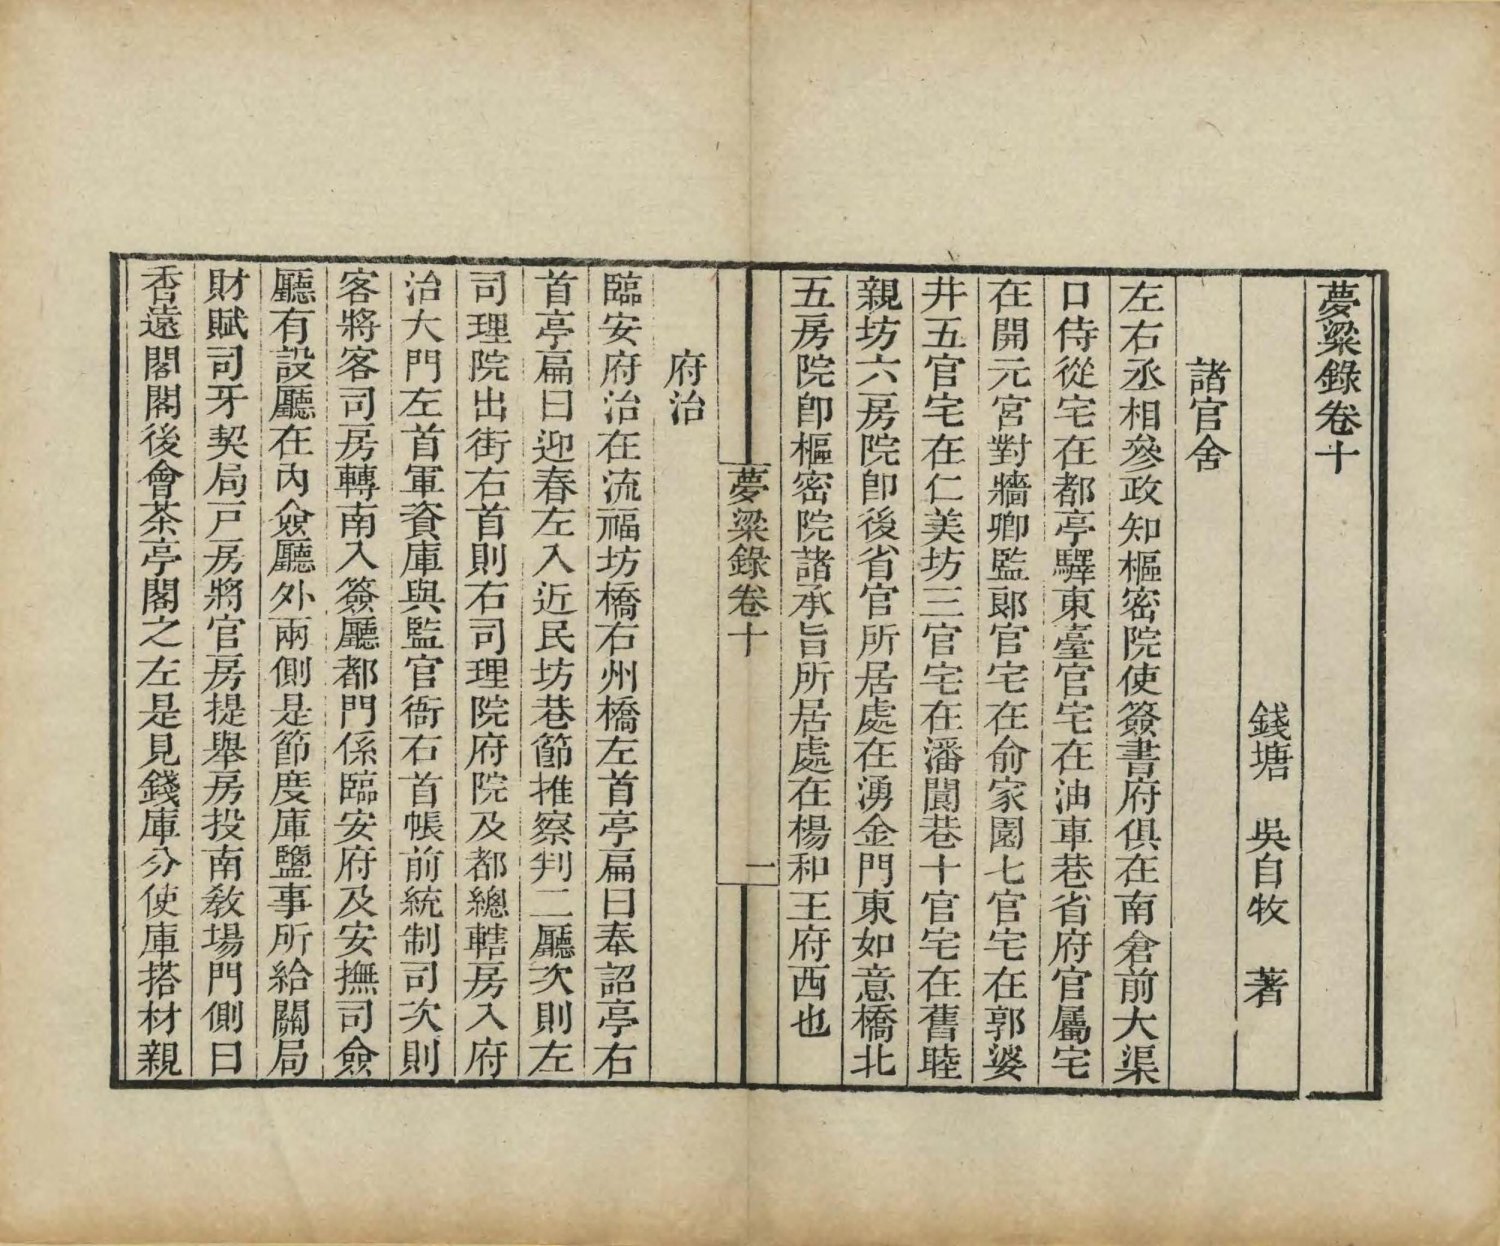 夢粱錄卷十
錢塘　吳自牧　著
諸官舍
左右丞相參政知樞密院使簽書府俱在南倉前大渠
口侍從宅在都亭驛東臺官宅在油車巷省府官屬宅
在開元宮對牆卿監郎官宅在俞家園七官宅在郭婆
井五官宅在仁美坊三官宅在潘閬巷十官宅在舊睦
親坊六房院卽後省官所居處在湧金門東如意橋北
五房院卽樞密院諸承旨所居處在楊和王府西也
夢粱錄卷十
一
府治
臨安府治在流福坊橋右州橋左首亭扁曰奉詔亭右
首亭扁曰迎春左入近民坊巷節推察判二廳次則左
司理院出街右首則右司理院府院及都總轄房入府
治大門左首軍資庫與監官衙右首帳前統制司次則
客將客司房轉南入簽廳都門係臨安府及安撫司僉
廳有設廳在內僉廳外兩側是節度庫鹽事所給關局
財賦司牙契局戸房將官房提舉房投南教場門側曰
香遠閣閣後會茶亭閣之左是見錢庫分使庫搭材親